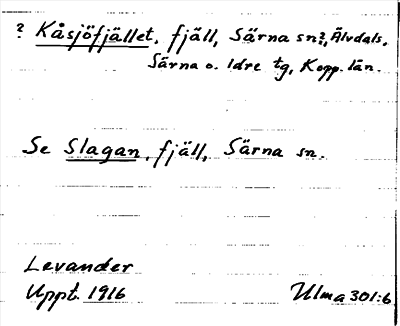 ? Kåsjöfjället, fjäll, Särna sn?, Älvdals,
Särna o. Idre tg, Kopp. län.
Se Slagan, fjäll, Särna sn.
Levander
Uppt. 1916
Ulma 301:6